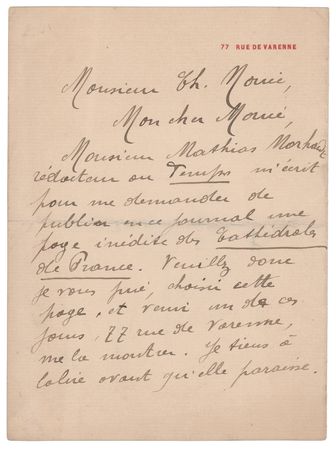 77 RUE DE VARENNE
Monsieur Th. Morié,
Mon cher Morié,
Monsieur Mathias Morhardt
rédacteur au Temps m'écrit
pour me demander de
publier en ce journal une
page inédite des Cathédrales
de France. Veuillez donc
je vous prie, choisir cette
page, et venir un de ces
jours, 77 rue de Varenne,
me la montrer. Je tiens à
la lire avant qu'elle paraisse.